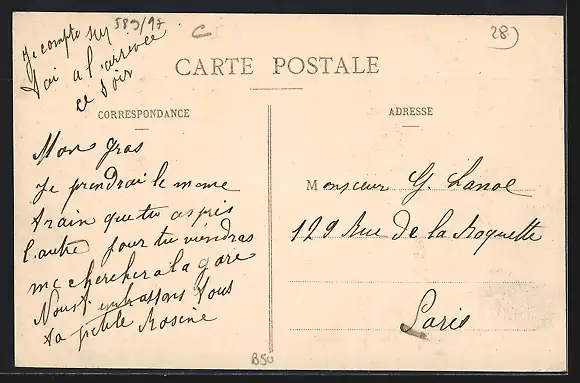 589/97
C
28)
Je compte sur
toi a l'arrivee
ce soir
CARTE POSTALE
CORRESPONDANCE
ADRESSE
Mon gros
Je prendrai le meme
train que tu as pris
l'autre jour tu viendras
me chercher a la gare
Nous t'embrassons tous
ta petite Rosine
Monsieur G. Lanoe
129 Rue de la Roquette
Paris
B50